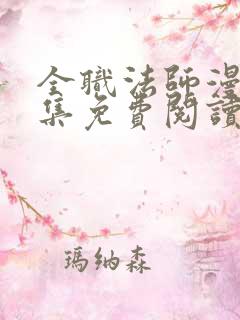 全職法師漫
集免費閱讀
瑪納森